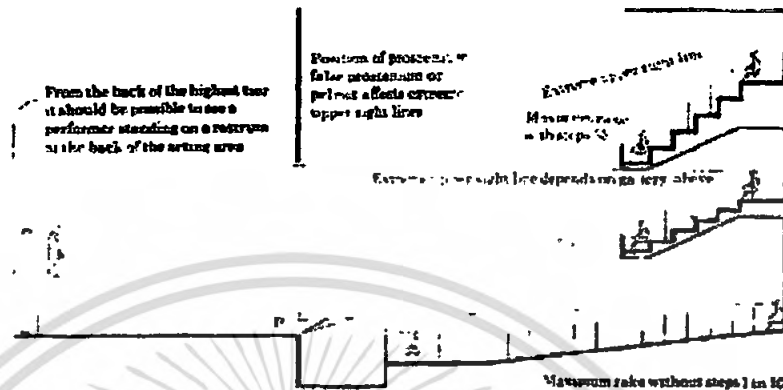 From the back of the highest tier
it should be possible to see a
performer standing on a rostrum
at the back of the acting area
Position of proscenium or
false proscenium or
pelmet affects extreme
upper sight lines
Extreme upper sight line
Maximum rake
with steps
Extreme upper sight line depends on tiers above
P
Maximum rake without steps 1 in 10